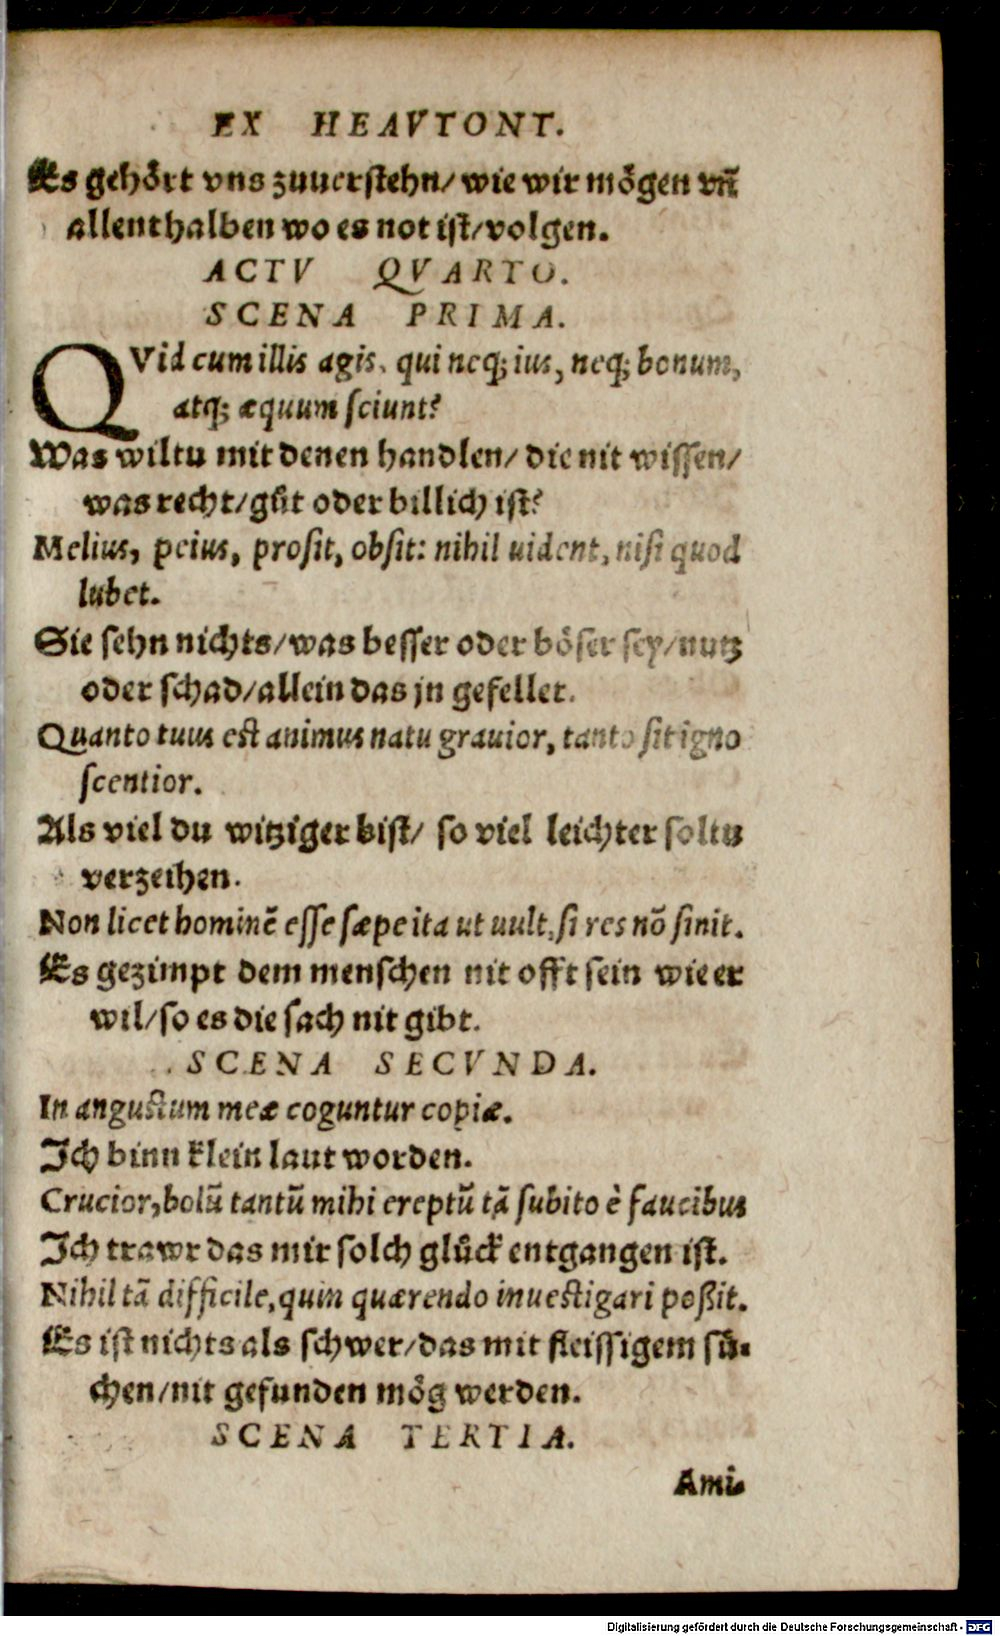 EX HEAVTONT.
Es gehört vns zuuerstehn/ wie wir mögen vñ
allenthalben wo es not ist/ volgen.
ACTV QVARTO.
SCENA PRIMA.
QVid cum illis agis, qui neq; ius, neq; bonum,
atq; æquum sciunt?
Was wiltu mit denen handlen/ die nit wissen/
was recht/ gůt oder billich ist?
Melius, peius, prosit, obsit: nihil uident, nisi quod
lubet.
Sie sehn nichts/ was besser oder böser sey/ nutz
oder schad/ allein das jn gefellet.
Quanto tuus est animus natu grauior, tanto sit igno
scentior.
Als viel du witziger bist/ so viel leichter soltu
verzeihen.
Non licet hominẽ esse sæpe ita ut uult, si res nõ sinit.
Es gezimpt dem menschen nit offt sein wie er
wil/ so es die sach nit gibt.
SCENA SECVNDA.
In angustum meæ coguntur copiæ.
Ich binn klein laut worden.
Crucior, bolũ tantũ mihi ereptũ tã subito è faucibus
Ich trawr das mir solch glůck entgangen ist.
Nihil tã difficile, quin quærendo inuestigari poßit.
Es ist nichts als schwer/ das mit fleissigem sů-
chen/ nit gefunden mög werden.
SCENA TERTIA.
Ami-
Digitalisierung gefördert durch die Deutsche Forschungsgemeinschaft - DFG